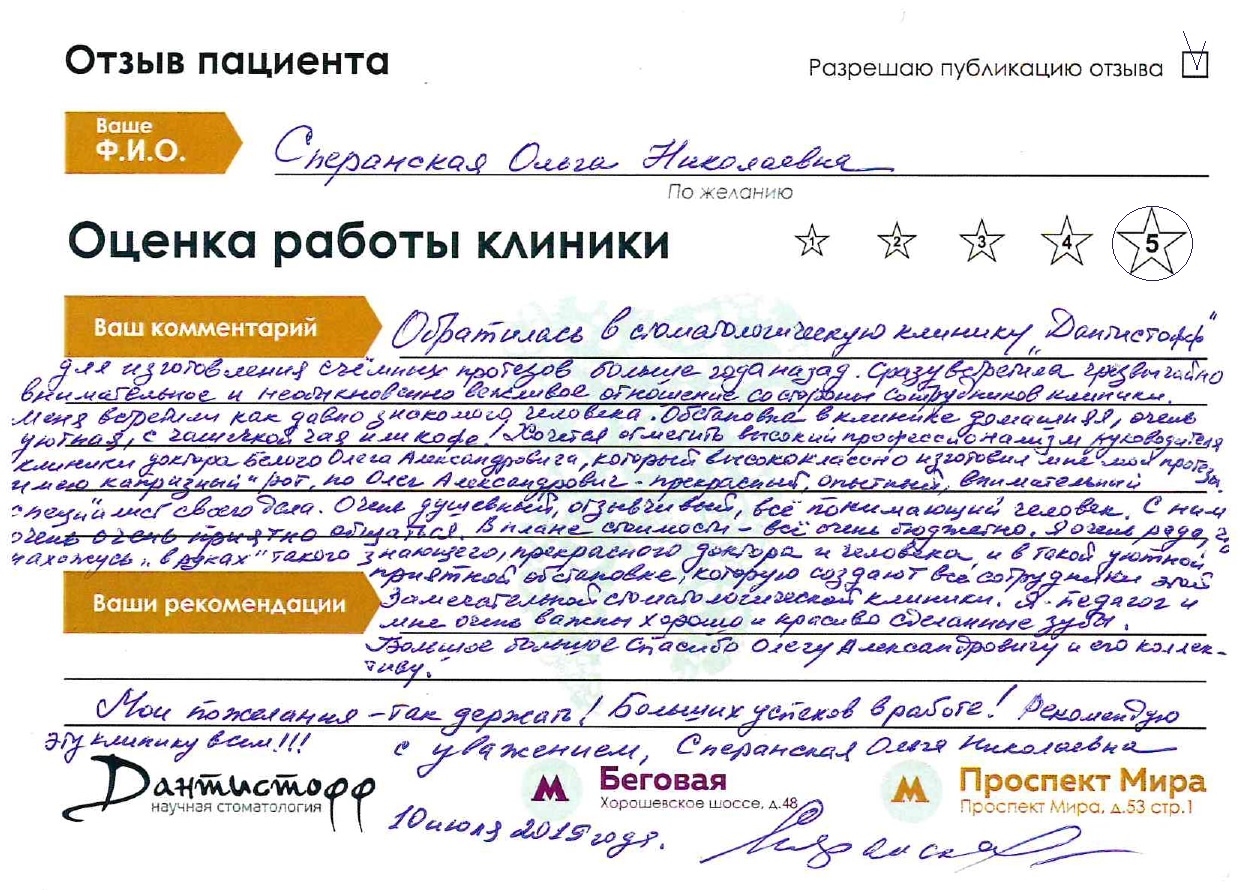 Отзыв пациента
Разрешаю публикацию отзыва
Ваше
Ф.И.О.
Сперанская Ольга Николаевна
По желанию
Оценка работы клиники
1 2 3 4 5
Ваш комментарий
Обратилась в стоматологическую клинику „Дантистофф"
для изготовления съёмных протезов больше года назад. Сразу встретила чрезвычайно
внимательное и необыкновенно вежливое отношение со стороны сотрудников клиники.
Меня встретили как давно знакомого человека. Обстановка в клинике домашняя, очень
уютная, с чашечкой чая или кофе! Хочется отметить высокий профессионализм руководителя
клиники доктора Белого Олега Александровича, который высококлассно изготовил мне мои протезы.
имею капризный" рот, но Олег Александрович - прекрасный, опытный, внимательный
специалист своего дела. Очень душевный, отзывчивый, всё понимающий человек. С ним
очень очень приятно общаться. В плане стоимости - всё очень бюджетно. Я очень рада, что
нахожусь „в руках" такого знающего, прекрасного доктора и человека, и в такой уютной
приятной обстановке, которую создают все сотрудники этой
Замечательной стоматологической клиники. Я - педагог и
мне очень важны хорошо и красиво сделанные зубы.
Ваши рекомендации
Большое большое Спасибо Олегу Александровичу и его коллек-
тиву!
Мои пожелания - так держать! Больших успехов в работе! Рекомендую
эту клинику всем!!!
с уважением, Сперанская Ольга Николаевна
Дантистофф
научная стоматология
Беговая
Хорошевское шоссе, д.48
Проспект Мира
Проспект Мира, д.53 стр.1
10 июля 2015 года.
Сперанская